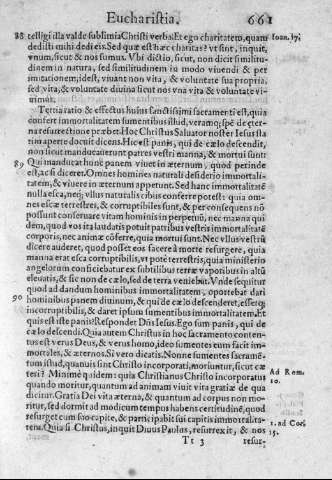 Eucharistia. 661
88 telligi illa valde sublimia Christi verba. Et ego charitatem, quam Ioan. 17.
dedisti mihi dedi eis. Sed quæ est hæc charitas? vt sint, inquit,
vnum, sicut & nos sumus. Vbi dictio, sicut, non dicit similitu-
dinem in natura, sed similitudinem in modo viuendi & per
imitationem, idest, viuant non vita, & voluntate sua propria,
sed vita, & voluntate diuina sicut nos vna vita & voluntate vi-
uimus.
Tertia ratio & effectus huius sanctissimi sacramenti est, quia
confert immortalitatem sumentibus illud, veramq; spē de æter-
na resurrectione præbet. Hoc Christus Saluator noster Iesus sta
tim aperte docuit dicens. Hic est panis, qui de cælo descendit,
non sicut manducauerunt patres vestri manna, & mortui sunt.
89 Qui manducat hunc panem viuet in æternum, quod perinde
est, ac si diceret. Omnes homines naturali desiderio immorali-
tatem, & viuere in æternum appetunt. Sed hanc immortalitatē
nulla esca, neq; vllus naturalis cibus conferre potest: quia om-
nes escæ terrestres, & corruptibiles sunt, & per consequens nō
possunt conseruare vitam hominis in perpetuū, nec manna qui
dem, quod vos ita laudatis potuit patribus vestris immortalitatē
corporis, nec animæ cōferre, quia mortui sunt. Nec vllus vestrū
dicere auderet, quod posset eos facere à morte resurgere, quia
manna erat esca corruptibilis, vt potè terrestris, quia ministerio
angelorum conficiebatur ex subtilibus terræ vaporibus in altū
eleuatis, & sic non de cælo, sed de terra veniebat. Vnde sequitur
quod ad dandum hominibus immortalitatem, oportebat dari
90 hominibus panem diuinum, & qui de cælo descenderet, essetq;
incorruptibilis, & daret ipsum sumentibus immortalitatem. Et
quis est iste panis? Respondet Dn̄s Iesus. Ego sum panis, qui de
cælo descendi. Quia autem Christus in hoc sacramento conten-
tus est verus Deus, & verus homo, ideo sumentes eum facit im-
mortales, & æternos. Si vero dicatis. Nonne sumentes sacramē-
tum istud, quamuis sint Christo incorporati, moriuntur, sicut cæ
teri? Minimè quidem: quia Christianus Christo incorporatus Ad Rom.
quando moritur, quantum ad animam viuit vita gratiæ de qua 10.
dicitur. Gratia Dei vita æterna, & quantum ad corpus non mo-
ritur, sed dormit ad modicum tempus habens certitudinē, quod
resurget cum suo capite, & participabit sui capitis immortalita-
tem. Quia si Christus, inquit Diuus Paulus, resurrexit, & nos 1. ad Cor. 15.
Tt 3 resur-